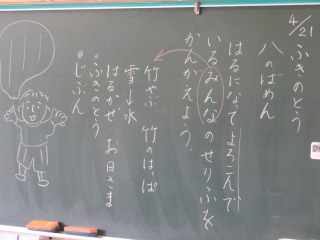 4/21
ふきのとう
八のばめん
はるになってよろこんで
いるみんなのせりふを
かんがえよう。
竹やぶ 竹のはっぱ
雪→水
はるかぜ・お日さま
◎ふきのとう
◎じぶん